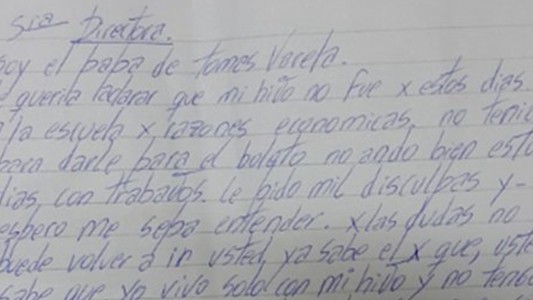 Sra Directora.
soy el papa de tomas Varela.
e querila hablarar que mi hiJo no fue x estos dias.
a la escuela x razones economicas, no tenia
para darle para el boleto no ando bien estos
dias, con trabaJos. Le pido mil disculpas y-
espero me sepa entender. x las dudas no
puede volver a ir usted ya sabe el x que, uste
sabe que yo vivo solo con mi hiJo y no tengo